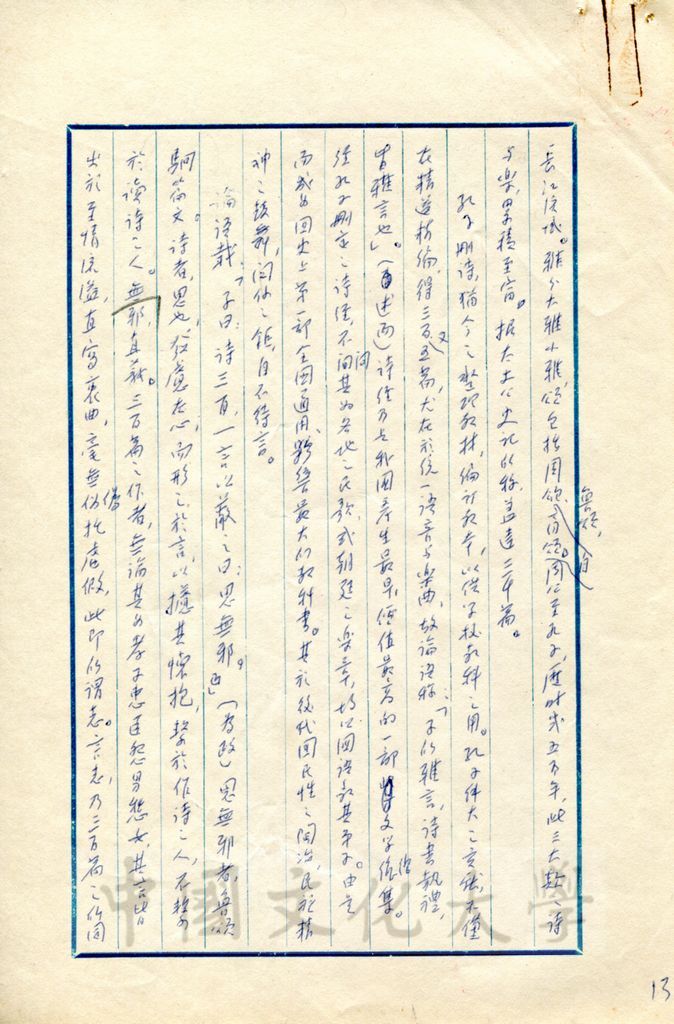 長江流域。雅分大雅小雅,頌包括周頌、魯頌、商頌。自周公至孔子,歷時幾五百年,此三大類之詩
與樂,累積至富。據太史公史記所稱,蓋達三千篇。
孔子刪詩,猶今之整理教材,編訂教本,以供學校教科之用。孔子偉大之貢獻,不僅
在精選精編,得三百又五篇,尤在於統一語音與樂曲,故論語稱:「子所雅言,詩書執禮,
皆雅言也」。(述而)詩經乃是我國產生最早,價值最高的一部文學總集。
經孔子刪定之詩經,不問其為各地之民歌,或朝廷之樂章,均以國語教其弟子。由是
而成為國史上第一部全國通用,影響最大的教科書。其於後代國民性之陶冶,民族精
神之鼓舞,關係之鉅,自不待言。
論語載:「子曰:詩三百,一言以蔽之曰:思無邪。」(為政)思無邪者,魯頌
駉篇文。詩者,思也,發慮在心,而形之於言,以攄其懷抱,繫於作詩之人,不繫
於讀詩之人。無邪,直義。三百篇之作者,無論其為孝子忠臣怨男愁女,其言皆
出於至情流溢,直寫衷曲,毫無偽托虛假,此即所謂志。言志,乃三百篇之所同
中國文化大學
13